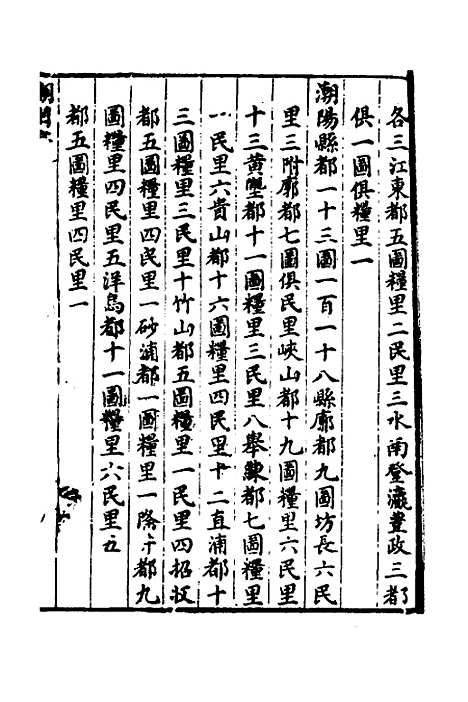 各三江東都五圖糧里二民里三水南登瀛豊政三都
俱一圖俱糧里一
潮陽縣都一十三圖一百一十八縣廓都九圖坊長六民
里三附廓都七圖俱民里峽山都十九圖糧里六民里
十三黄壟都十一圖糧里三民里八舉練都七圖糧里
一民里六貴山都十六圖糧里四民里十二直浦都十
三圖糧里三民里十竹山都五圖糧里一民里四招收
都五圖糧里四民里一砂浦都一圖糧里一隆井都九
圖糧里四民里五洋烏都十一圖糧里六民里五
都五圖糧里四民里一